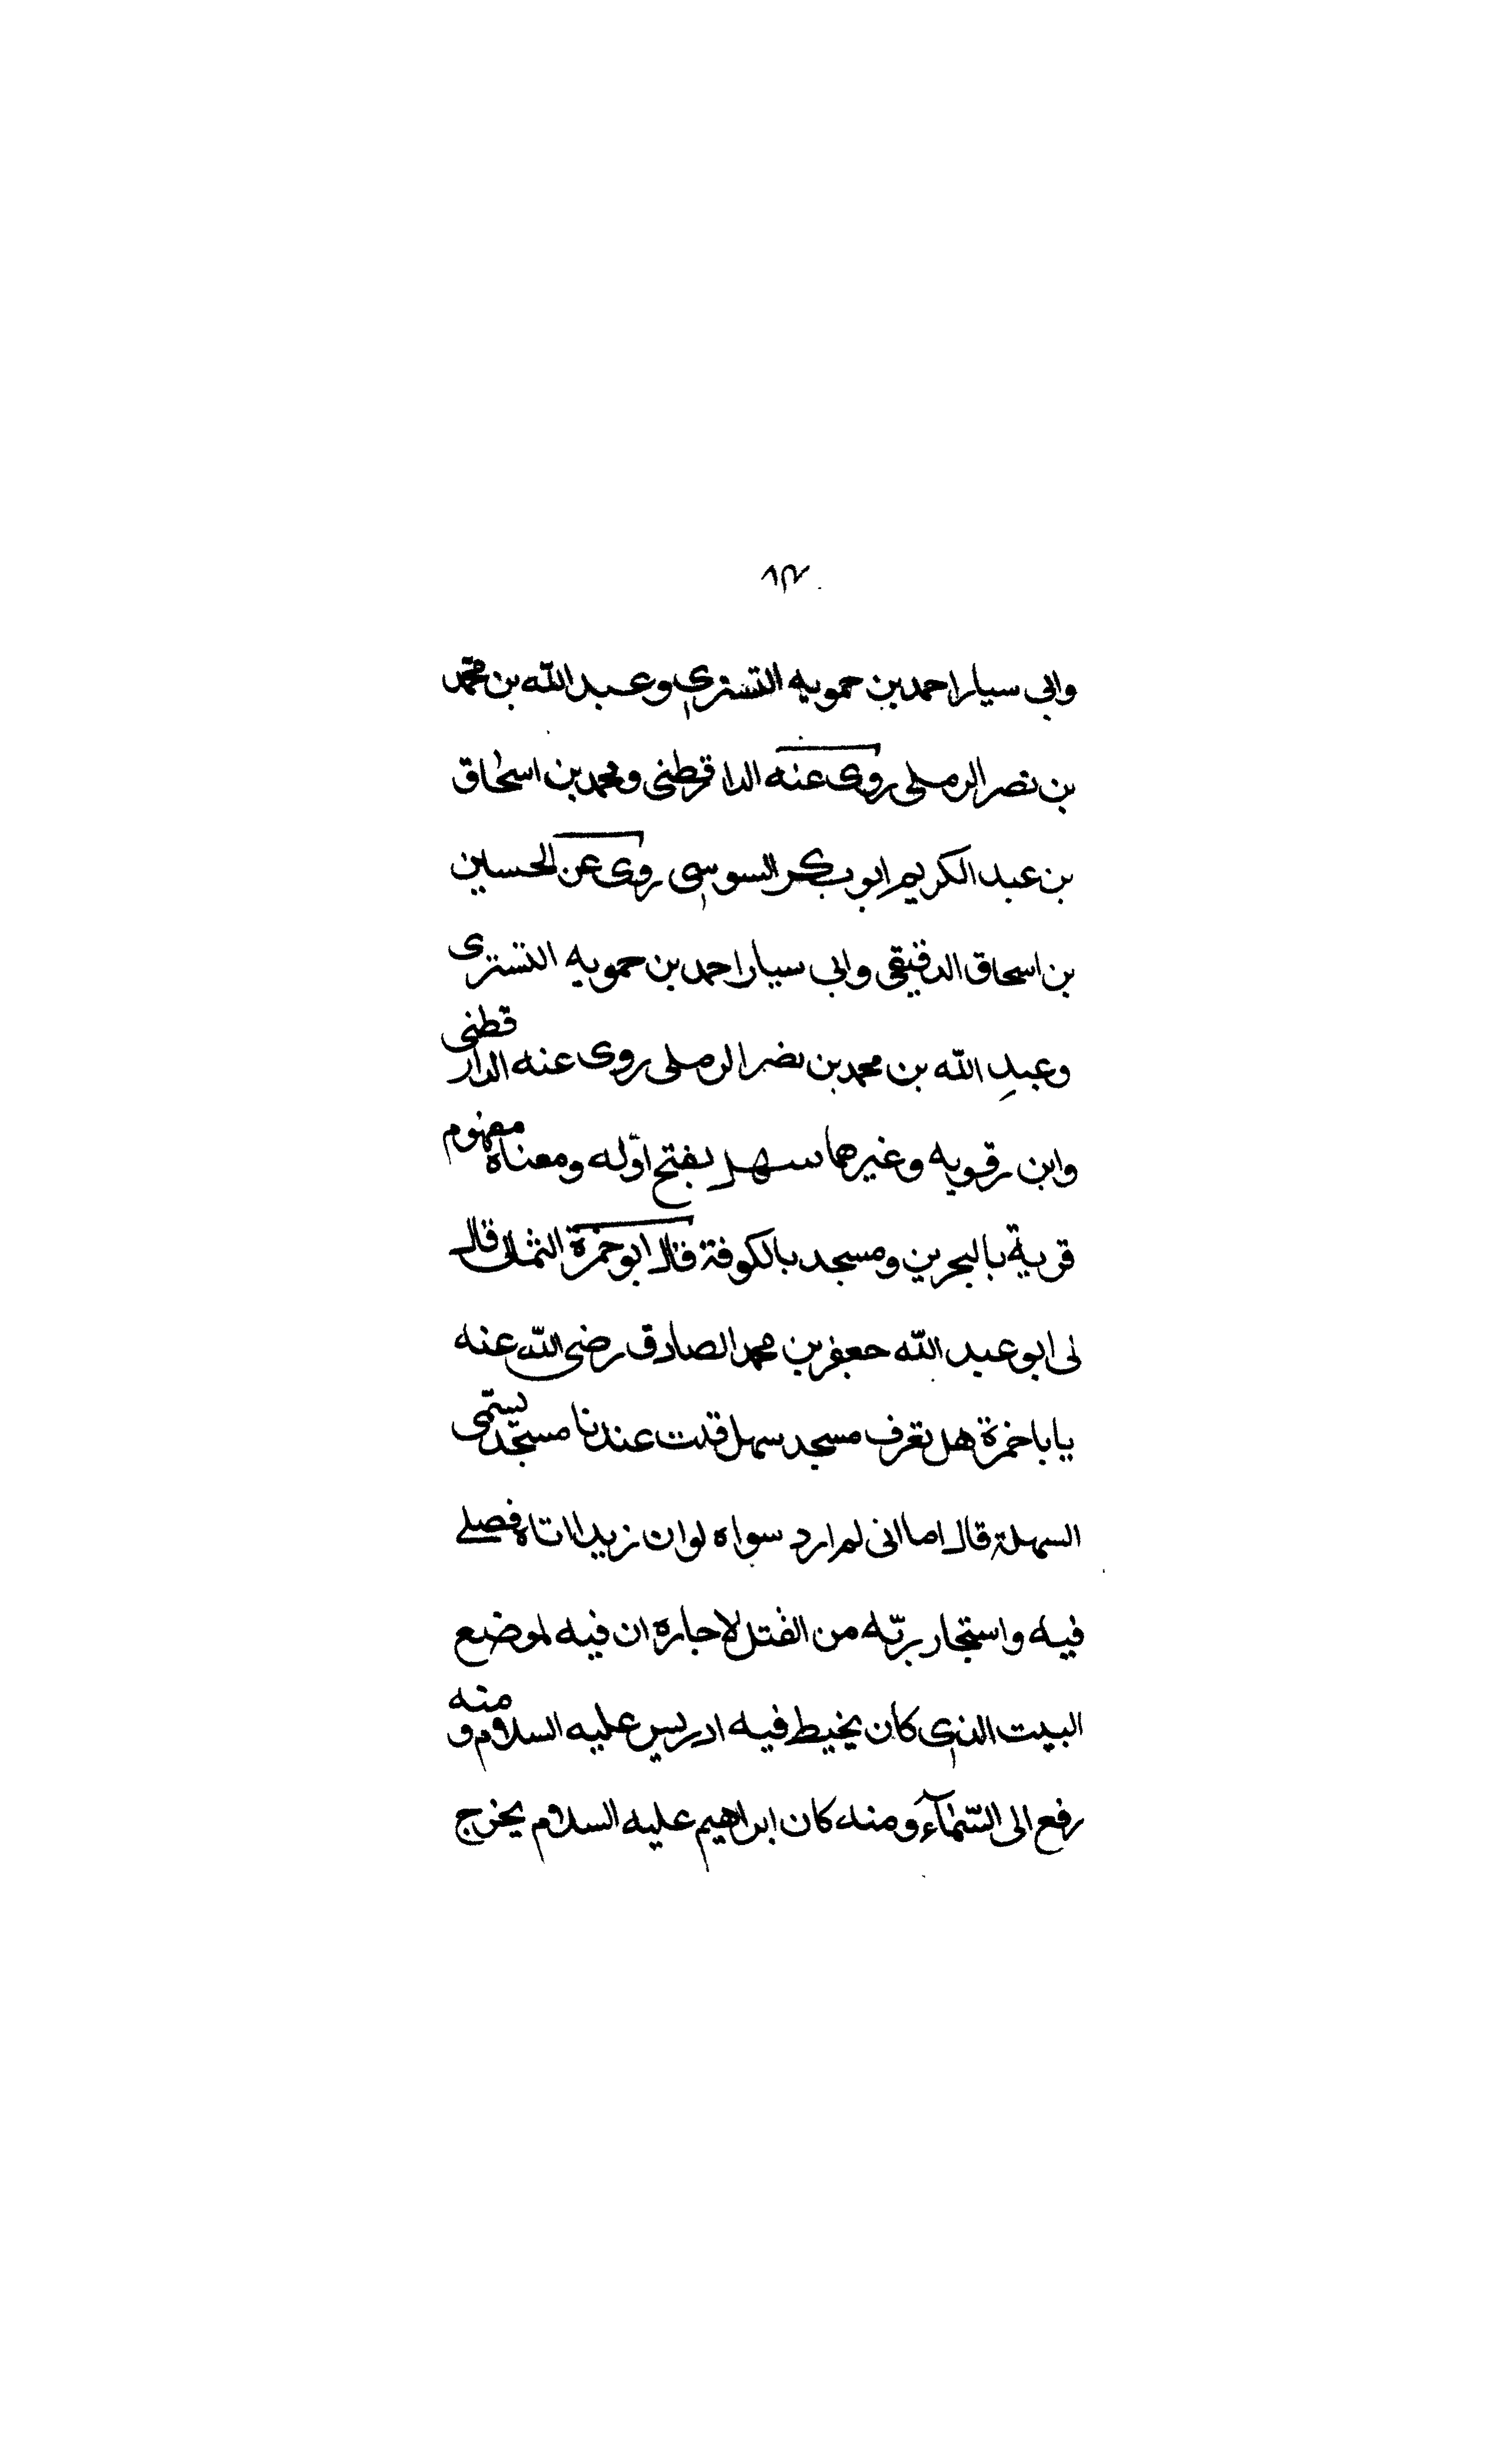 وابى سيار احمد بن حمويه التسترى وعبد الله بن محمد
بن نصر الرملى روى عنه الدارقطنى ومحمد بن اسحاق
بن عبد الكريم ابو بكر السوسى روى عن الحسين
بن اسحاق الدقيقى وابى سيار احمد بن حمويه التسترى
وعبد الله بن محمد بن نصر الرملى روى عنه الدار قطنى
وابن رقويه وغيرها سهل بفتح اوّله ومعناه مفهوم
قرية بالبحرين ومسجد بالكوفة قال ابو حمزة الثمالى قال
لى ابو عبد الله جعفر بن محمد الصادق رضى الله عنه
يا با حمزة هل تعرف مسجد سهل قلت عندنا مسجد يسمّى
السهلة قال اما انى لم ارد سواه لو ان زيدا اتاه فصلى
فيه واستجار ربّه من القتل لاجاره ان فيه لموضع
البيت الذى كان يخيط فيه ادريس عليه السلام و منه
رفع الى السّمآء ومنه كان ابراهيم عليه السلام يخرج